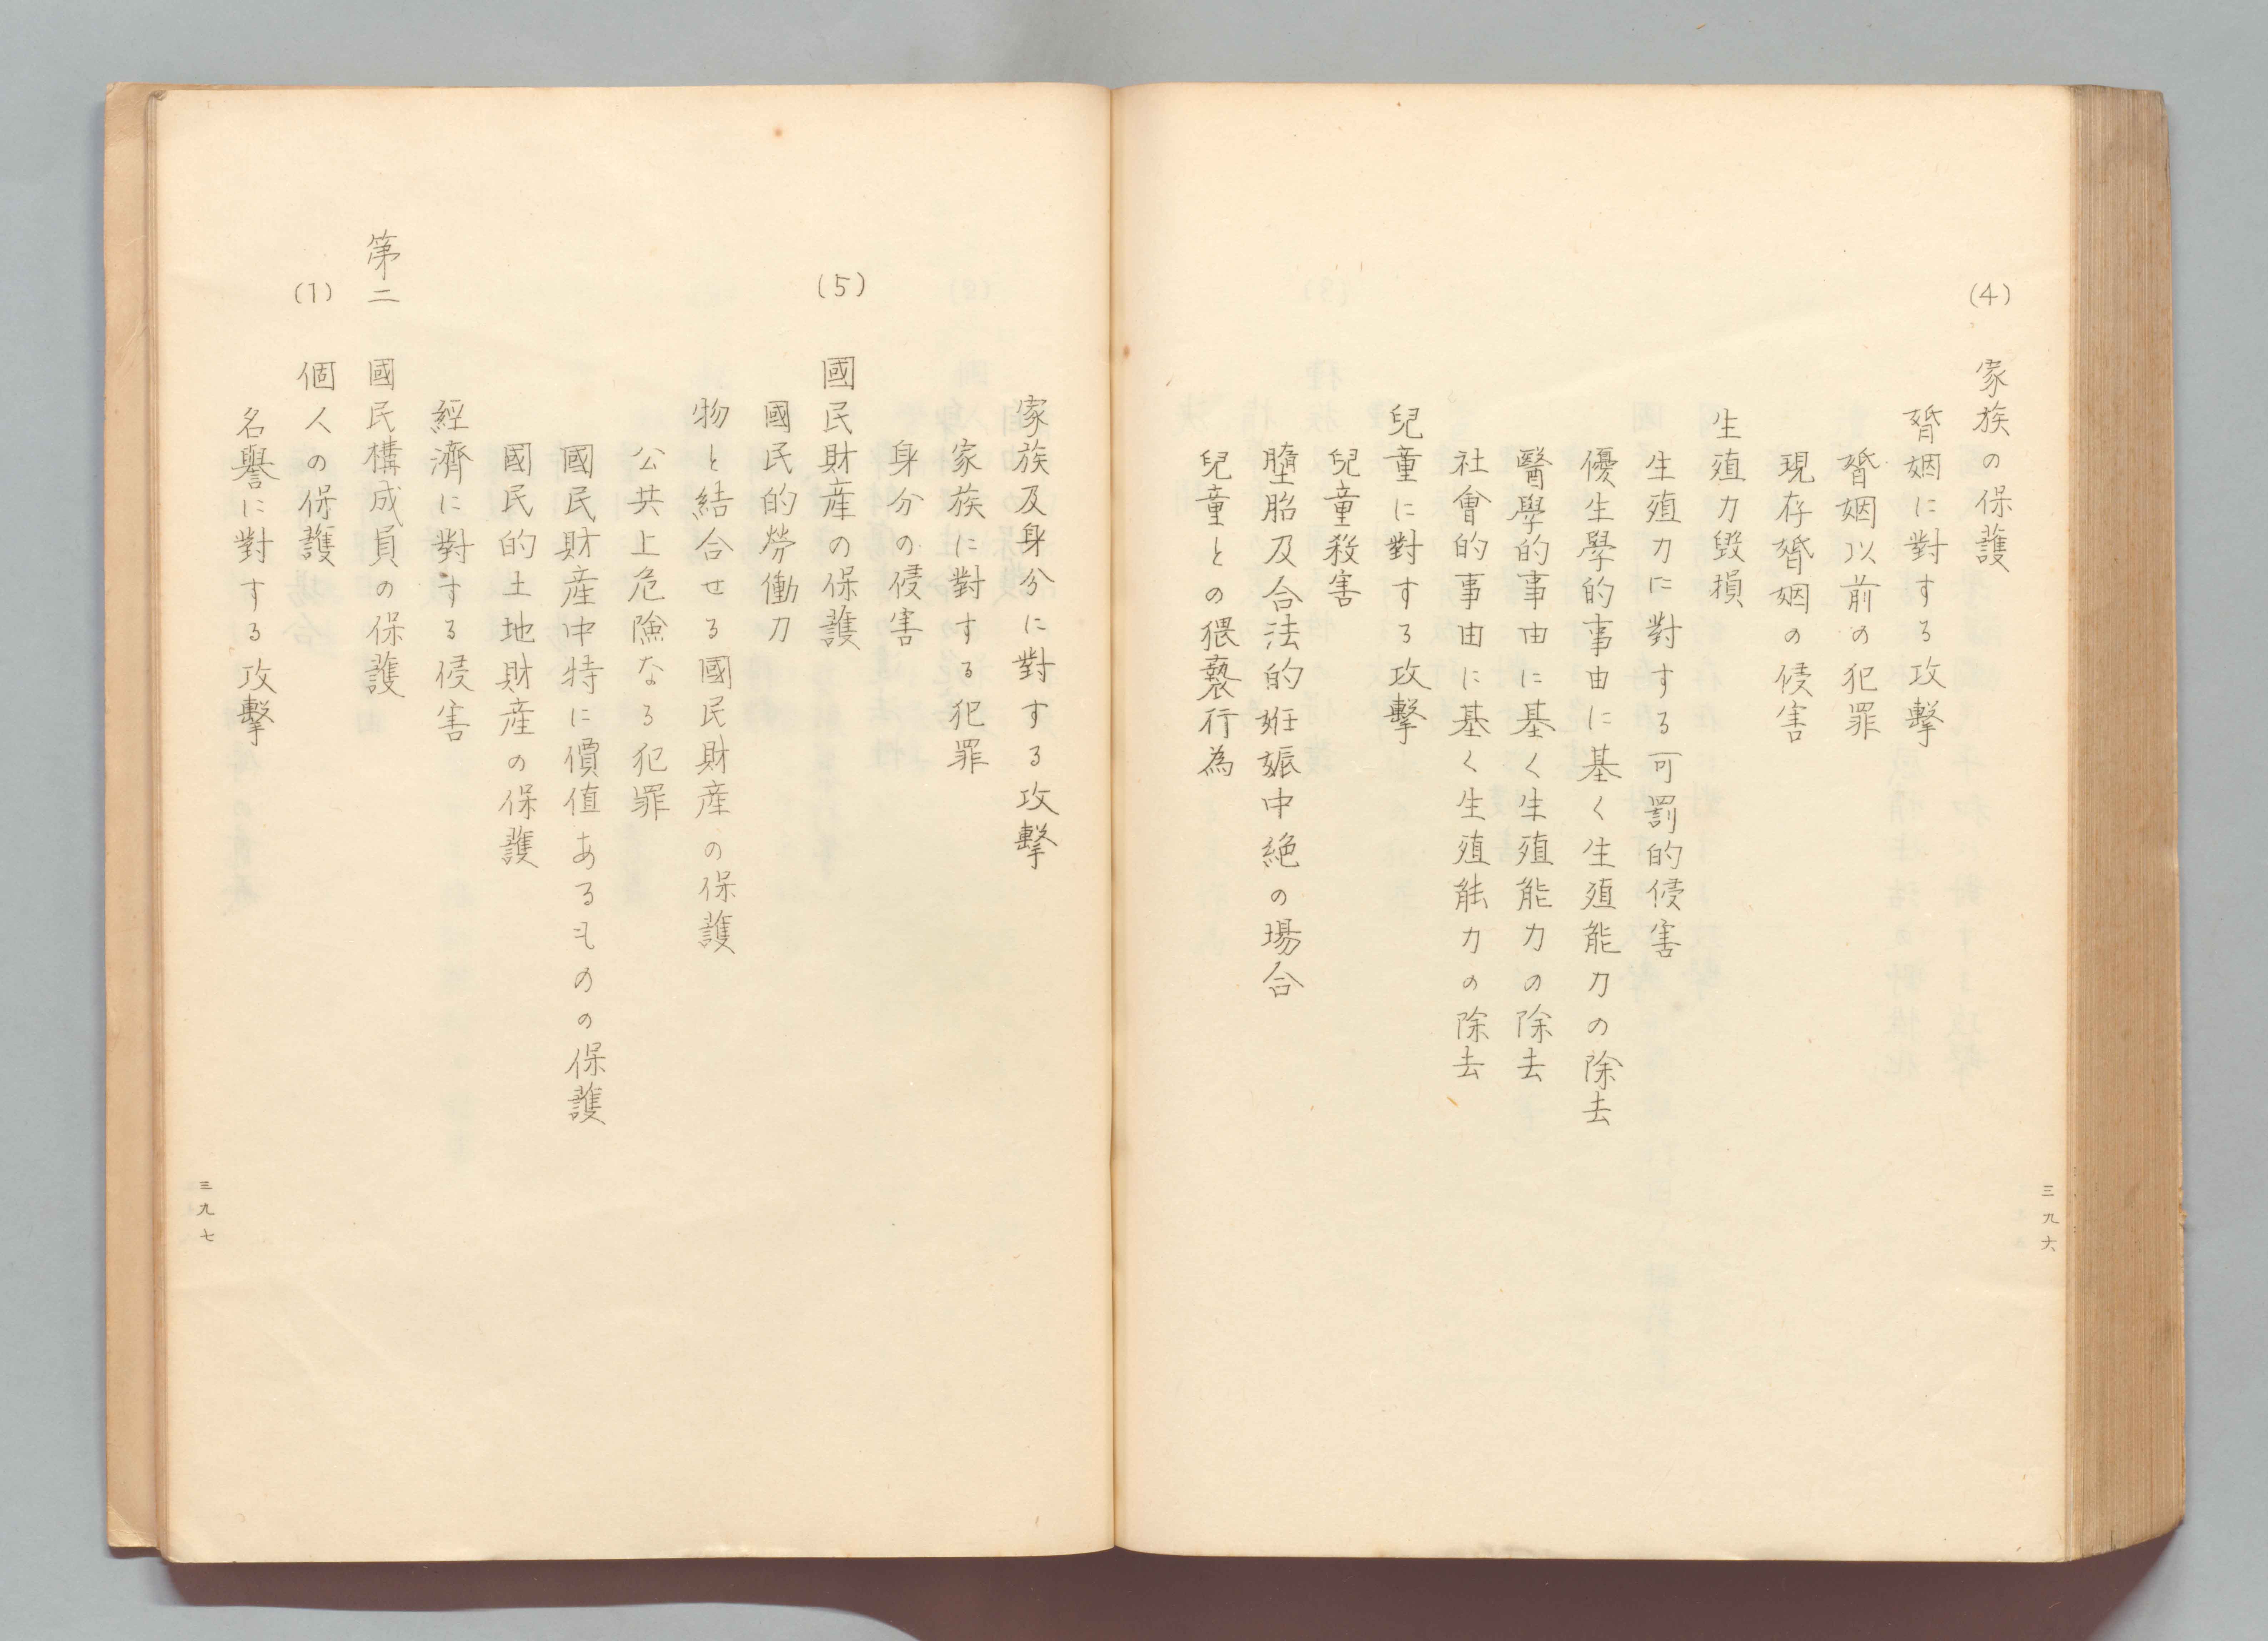 (4) 家族の保護
婚姻に對する攻擊
婚姻以前の犯罪
現存婚姻の侵害
生殖力毀損
生殖力に對する可罰的侵害
優生學的事由に基く生殖能力の除去
醫學的事由に基く生殖能力の除去
社會的事由に基く生殖能力の除去
兒童に對する攻擊
兒童殺害
墮胎及合法的姙娠中絶の場合
兒童との猥褻行為
三九六
家族及身分に對する攻擊
家族に對する犯罪
身分の侵害
(5) 國民財産の保護
國民的勞働力
物と結合せる國民財産の保護
公共上危險なる犯罪
國民財産中特に價値あるものの保護
國民的土地財産の保護
經濟に對する侵害
第二 國民構成員の保護
(1) 個人の保護
名譽に對する攻擊
三九七